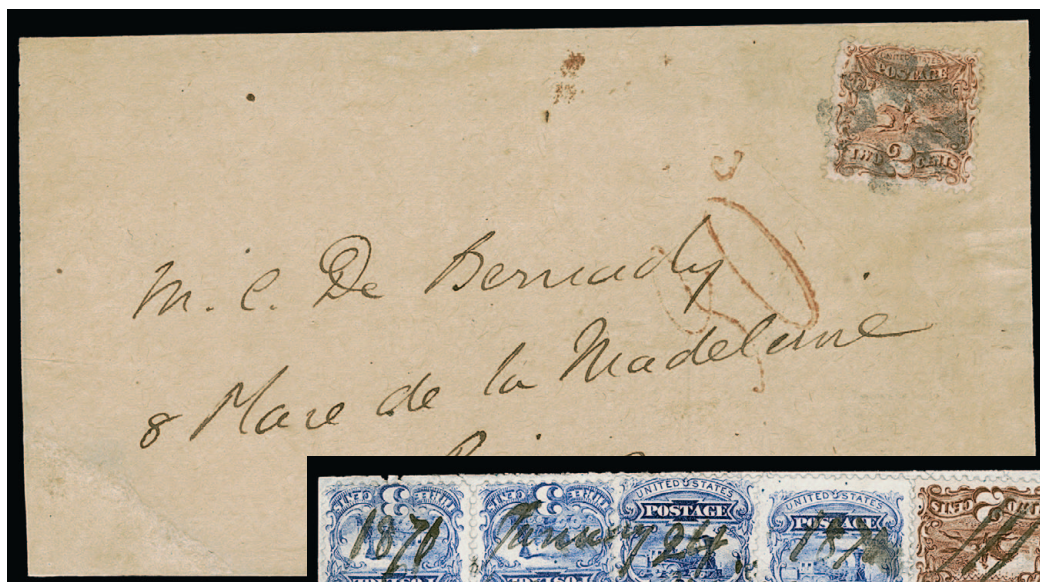 UNITED STATES
POSTAGE
TWO 2 CENTS
M. C. De Bernardy
8 Place de la Madeleine
3
3
UNITED STATES
POSTAGE
UNITED STATES
POSTAGE
2
1870
January 24